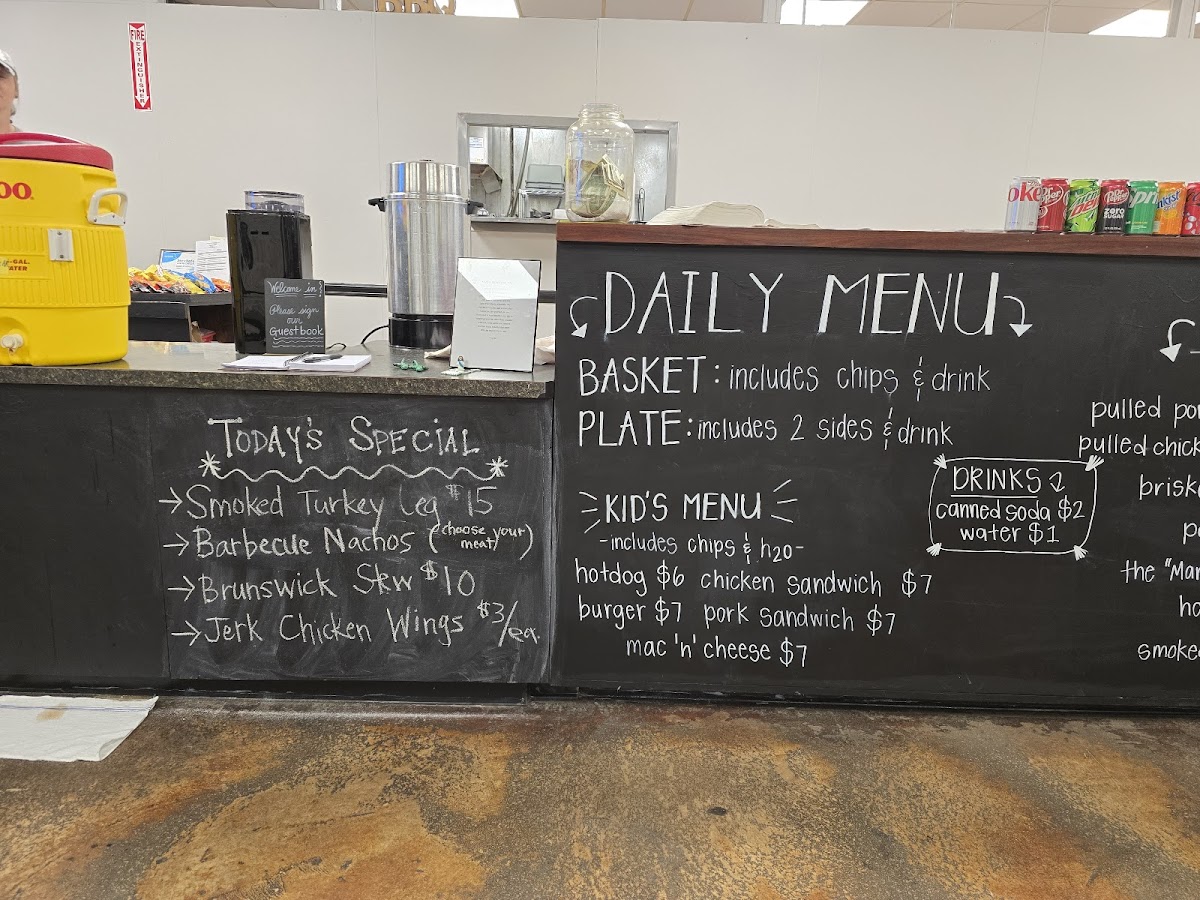 BBQ
FIRE EXTINGUISHER
Welcome in!
Please sign
our
Guestbook
TODAY'S SPECIAL
→ Smoked Turkey Leg $15
→ Barbecue Nachos (choose your meat)
→ Brunswick Stew $10
→ Jerk Chicken Wings $3/ea.
DAILY MENU
BASKET: includes chips & drink
PLATE: includes 2 sides & drink
KID'S MENU
-includes chips & h2o-
hotdog $6 chicken sandwich $7
burger $7 pork sandwich $7
mac 'n' cheese $7
DRINKS
canned soda $2
water $1
pulled por
pulled chick
brisk
the "Man
smoked
oke
Dr Pepper
zero